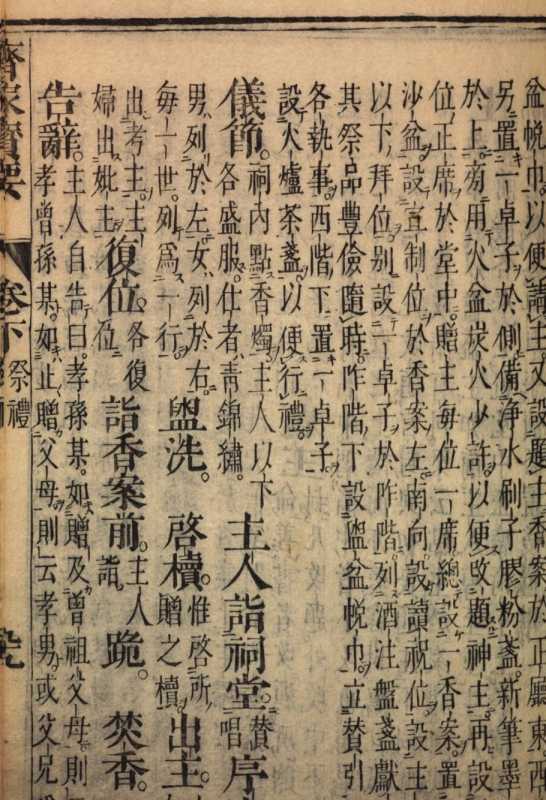 盆帨巾。以便請主。又設題主香案於正廳東西
另置一卓子於側備淨水刷子膠粉盞。新筆墨
於上。旁用火盆炭火少許。以便改題神主。再設
位正席於堂中。贈主每位一席總設一香案。置
沙盆設宣制位於香案左南向設讀祝位設主
以下拜位。別設一卓子於阼階列酒注盤盞獻
其祭品豐儉隨時。阼階下設盥盆帨巾。立贊引
各執事。西階下置一卓子。
設火爐茶盞。以便行禮。
儀節。祠內點香燭。主人以下各盛服。仕者青錦繡。 主人詣祠堂。贊唱 序
男列於左。女列於右。每一世。列為一行。 盥洗。 啓櫝。惟啓所贈之櫝。 出主。
出考主。主婦出妣主 復位。各復位 詣香案前。主人詣。 跪。 焚香。
告辭。主人自告曰。孝孫某。如贈及曾祖父母則
孝曾孫某。如止贈父母。則云孝男。或父兄
齊家寶要 卷下 祭禮